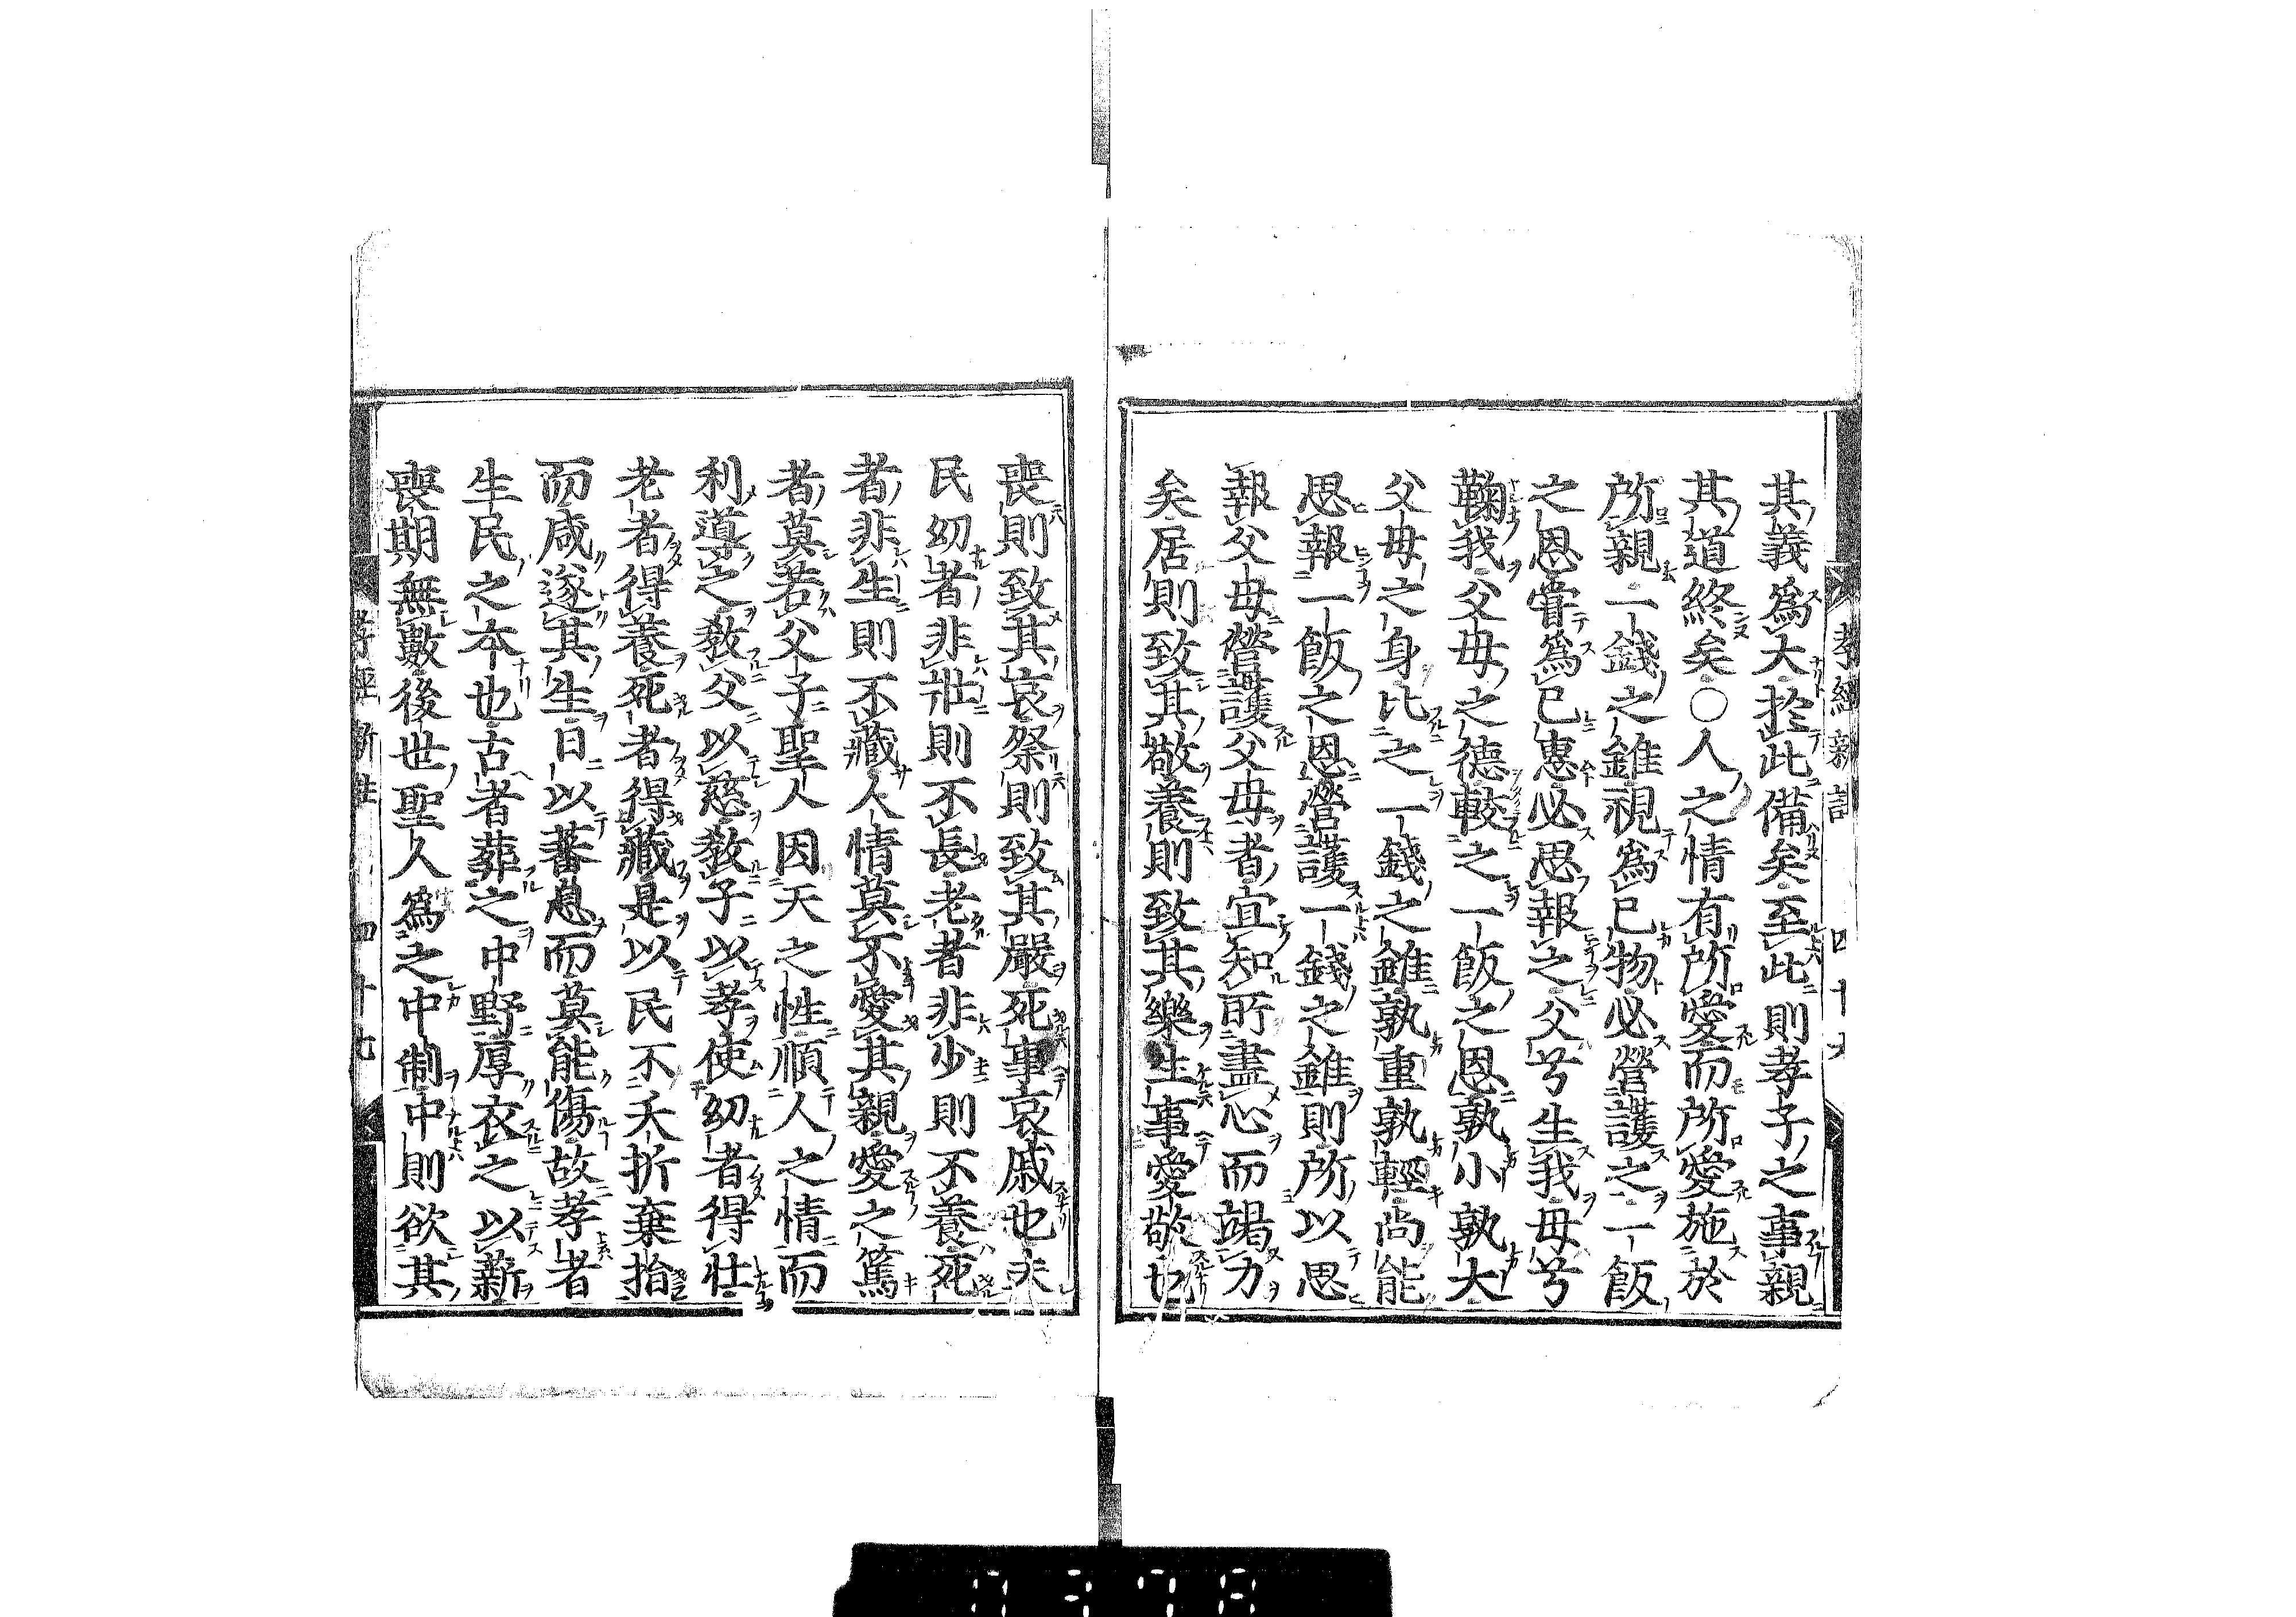 其義爲大於此備矣至此則孝子之事親
其道終矣○人之情有所愛而所愛施於
所親一錢之雖視爲已物必營護之一飯
之恩嘗爲已惠必思報之父兮生我母兮
鞠我父母之德較之一飯之恩孰小孰大
父母之身比之一錢之雖孰重孰輕尚能
思報一飯之恩營護一錢之雖則所以思
報父母營護父母者宜知所盡心而竭力
矣居則致其敬養則致其樂生事愛敬也
喪則致其哀祭則致其嚴死事哀戚也夫
民幼者非壯則不長老者非少則不養死
者非生則不藏人情莫不愛其親愛之篤
者莫若父子聖人因天之性順人之情而
利導之教父以慈教子以孝使幼者得壯
老者得養死者得藏是以民不夭折棄捐
而咸遂其生日以蕃息而莫能傷故孝者
生民之本也古者葬之中野厚衣之以薪
喪期無數後世聖人爲之中制中則欲其
孝經新註 四十九